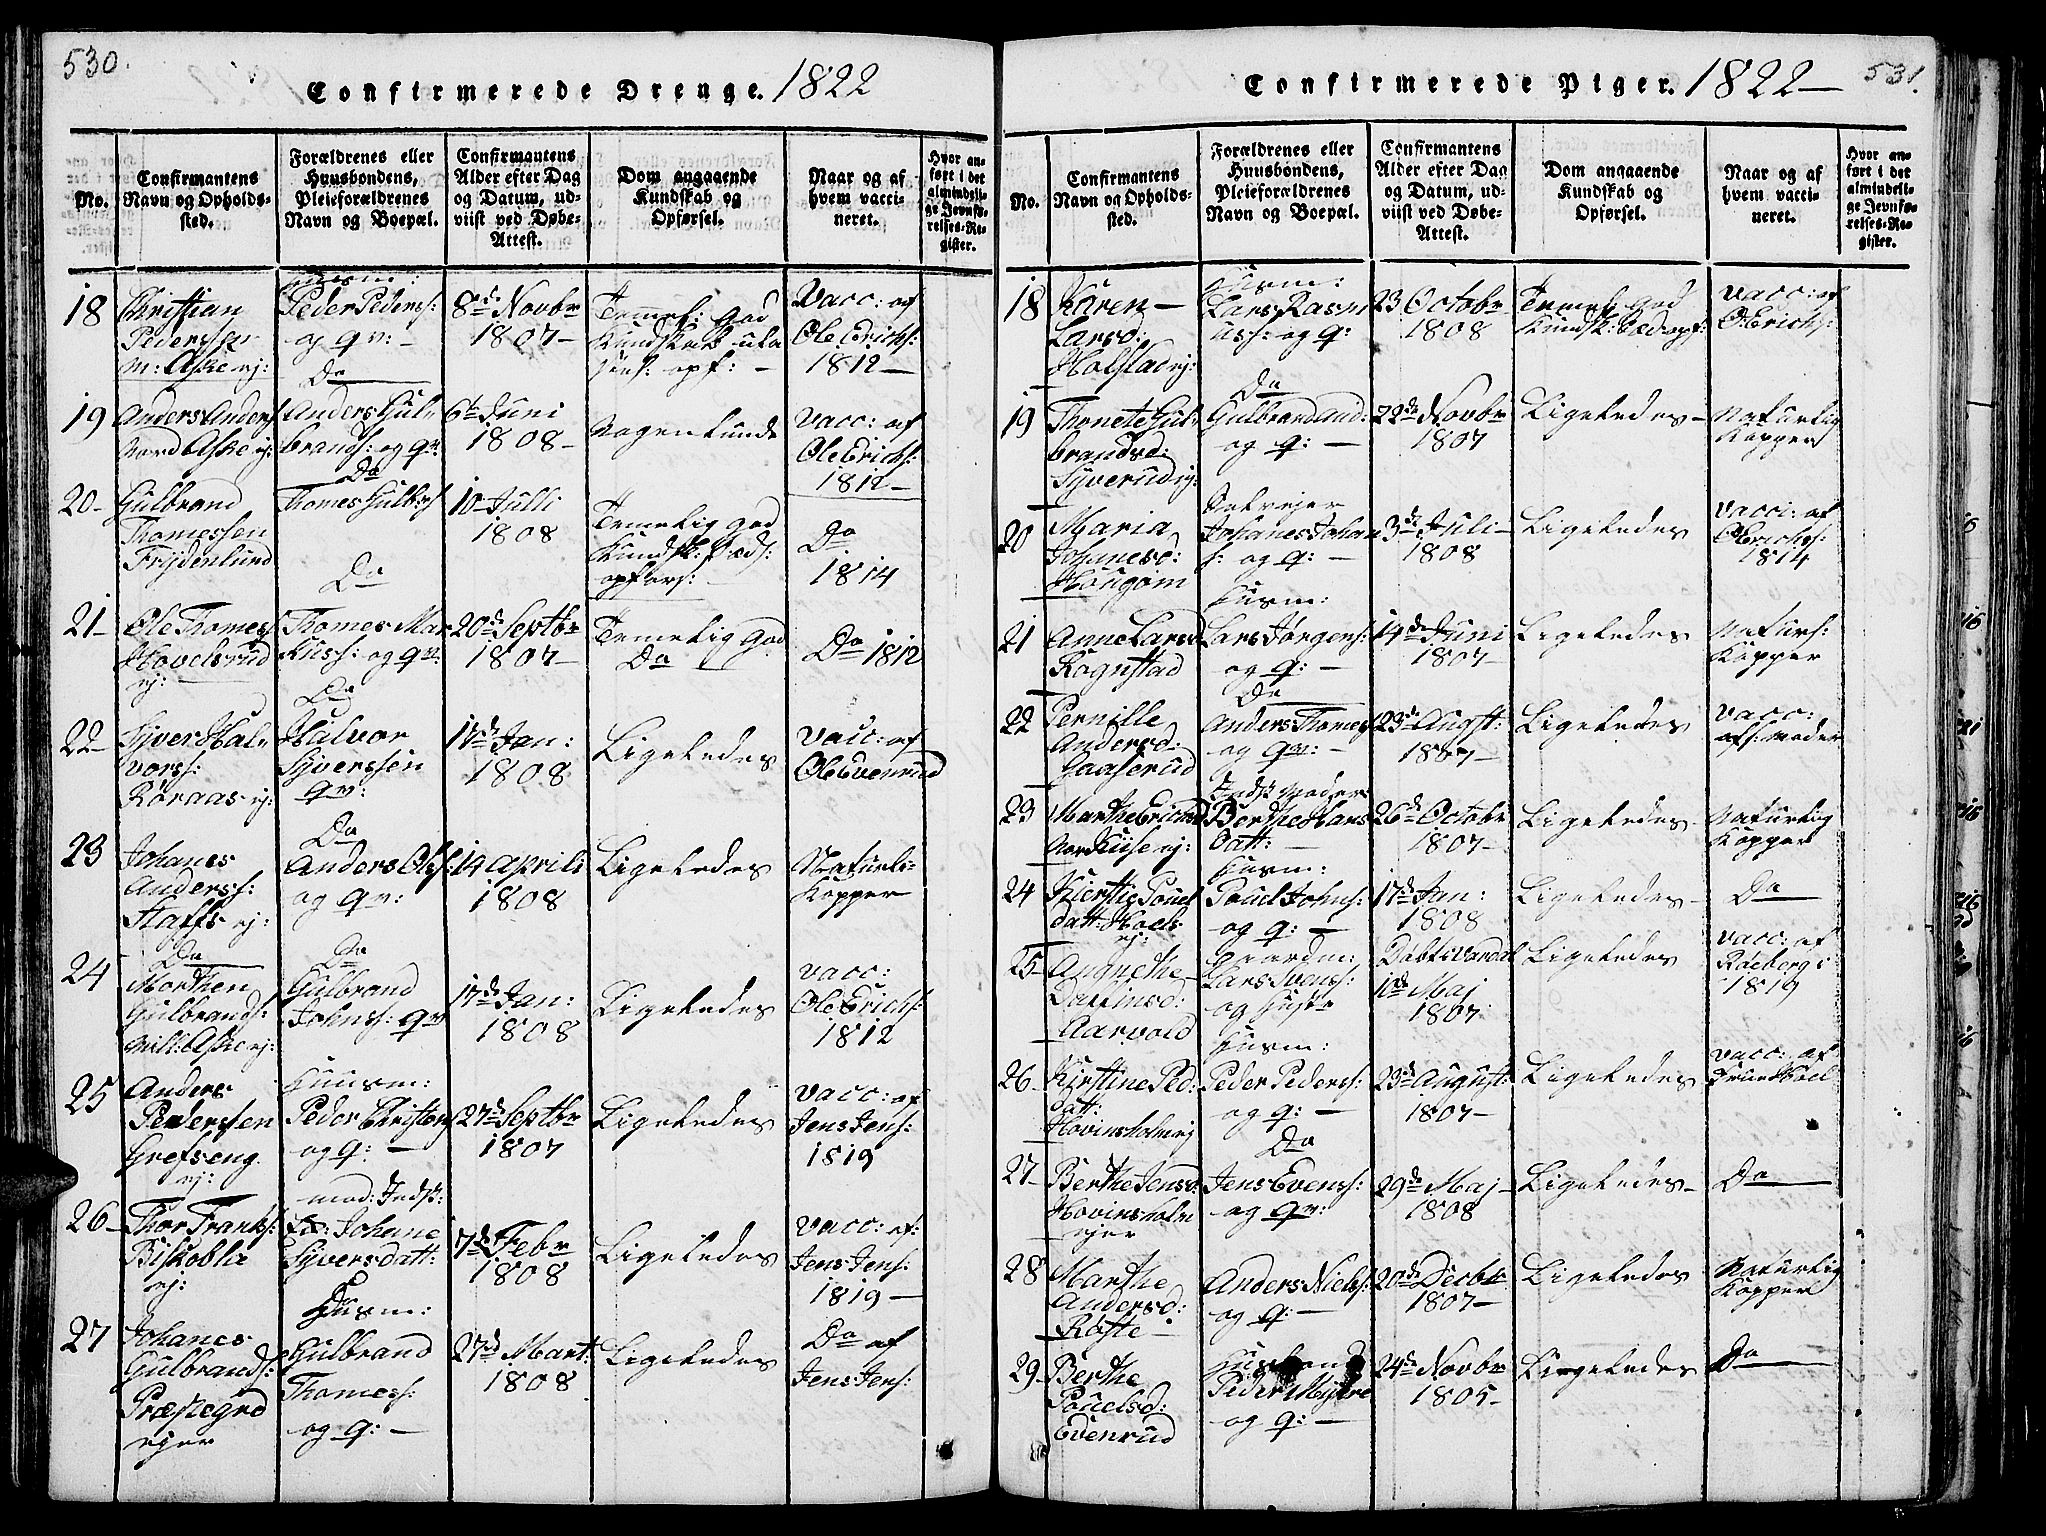 530.
Confirmerede Drenge. 1822
No.
Confirmantens
Navn og Opholds-
sted.
Forældrenes eller
Huusbondens,
Pleieforældrenes
Navn og Boepæl.
Confirmantens
Alder efter Dag
og Datum, ud-
viist ved Døbe-
Attest.
Dom angaaende
Kundskab og
Opførsel.
Naar og af
hvem vacci-
neret.
Hvor an-
ført i det
almindeli-
ge Jevnfø-
relses-Re-
gister.
18
Christian
Pederssen
m: Aske ej:
Peder Peders:
og qv:
8de Novbr
1807
Temel: god
Kundskab
opf:
Vacc: af
Ole Erichs:
1812
19
Anders Anders
Nord Aske ej:
Do
Anders Gul-
brands: og qv:
6te Juni
1808
Vacc: af
Ole Erichs:
1812
20
Gulbrand
Thomessen
Frydenlund
Do
Thomes Gulbrs
10 Julli
1808
Temelig god
Kundsk:
opførs:
Do
1814
21
Ole Thomes
Hovelsrud
ej:
Do
Thomes Mar
kuss: og qv:
20de Septbr
1807
Temelig god
Do
Do 1812
22
Syver Hal-
vors:
Røraas ej:
Do
Halvor
Syverssen
qv:
17de Jan:
1808
Ligeledes
Vacc: af
Ole Evenrud
23
Johanes
Anders:
Staffs ej:
Do
Anders Ols:
og qv:
14 Aprili
1808
Ligeledes
Naturli:
Kopper
24
Do
Morthen
Gulbrands:
Mill: Aske ej:
Do
Gulbrand
Johns: qv
17de Jan:
1808
Ligeledes
Vacc:
Ole Erichs:
1812
25
Anders
Pederssen
Grefseng
ej:
Huusm:
Peder Christens
og q:
27de Septbr
1807
Ligeledes
Vacc: af
Jens Jens:
1819
26
Thor Frants:
Biskoblia
ej:
mod: Inds:
Johane
Syversdatt:
7de Febr
1808
Ligeledes
Vacc: af:
Jens Jens:
1819
27
Johanes
Gulbrands:
Præstegrd
ejer
Husm:
Gulbrand
Thomess:
og q:
27de Mart:
1808
Ligeledes
Do af
Jens Jens:
531.
Confirmerede Piger. 1822
No.
Confirmantens
Navn og Opholds-
sted.
Forældrenes eller
Huusbondens,
Pleieforældrenes
Navn og Boepæl.
Confirmantens
Alder efter Dag
og Datum, ud-
viist ved Døbe-
Attest.
Dom angaaende
Kundskab og
Opførsel.
Naar og af
hvem vacci-
neret.
Hvor an-
ført i det
almindeli-
ge Jevnfø-
relses-Re-
gister.
18
Karen
Larsd:
Holstad ej:
Husm:
Lars Rasm
uss: og q:
23 Octobr
1808
Temelig god
Kundsk:
Vacc: af
O: Erichs:
19
Thonete Gul-
brandsd:
Syverud ej:
Do
Gulbrand And:
og q:
22de Novbr
1807
Ligeledes
Naturlig
Kopper
20
Maria
Johanesd:
Hougom
Johanes Johan
s: og q:
3de Juli
1808
Ligeledes
Vacci: af
O: Erichs:
1814
21
Anne Larsd
Rognstad
Husm:
Lars Jørgens:
og q:
14de Juni
1807
Ligeledes
Naturl:
Kopper
22
Pernille
Andersd:
Gaaserud
Do
Anders Thomes
og qv:
23de Augst:
1807
Ligeledes
Vacc:
af: Moder
23
Marthe Erichsd
Nord Kise ej:
Inds: Moder
Berthe Hans
datt:
26de Octobr
1807
Ligeledes
Naturlig
Kopper
24
Kierstie Pouel
datt: Hoels
ej:
Husm:
Pouel Johns:
og q:
17de Jan:
1808
Ligeledes
Do
25
Angnethe
Aarvold
Gaardm:
Lars Svens:
og Hustr
1ste Maj
1807
Ligeledes
Vacc: af
Roeberg
1819
26
Kirstine Ped:
datt:
Hovinsholm ej
Husm:
Peder Peders:
og q:
23de August:
1807
Ligeledes
Vacc: af
27
Berthe Jensd:
Hovinsholm
ejer
Do
Jens Evens:
og qv:
29de Maj
1808
Ligeledes
Do
28
Marthe
Andersd:
Røste
Anders Niels:
og q:
20de Decbr
1807
Ligeledes
Naturlig
Kopper
29
Berthe
Pouelsd:
Evenrud
Peder Myhre
og q:
24de Novbr
1805
Ligeledes
Do